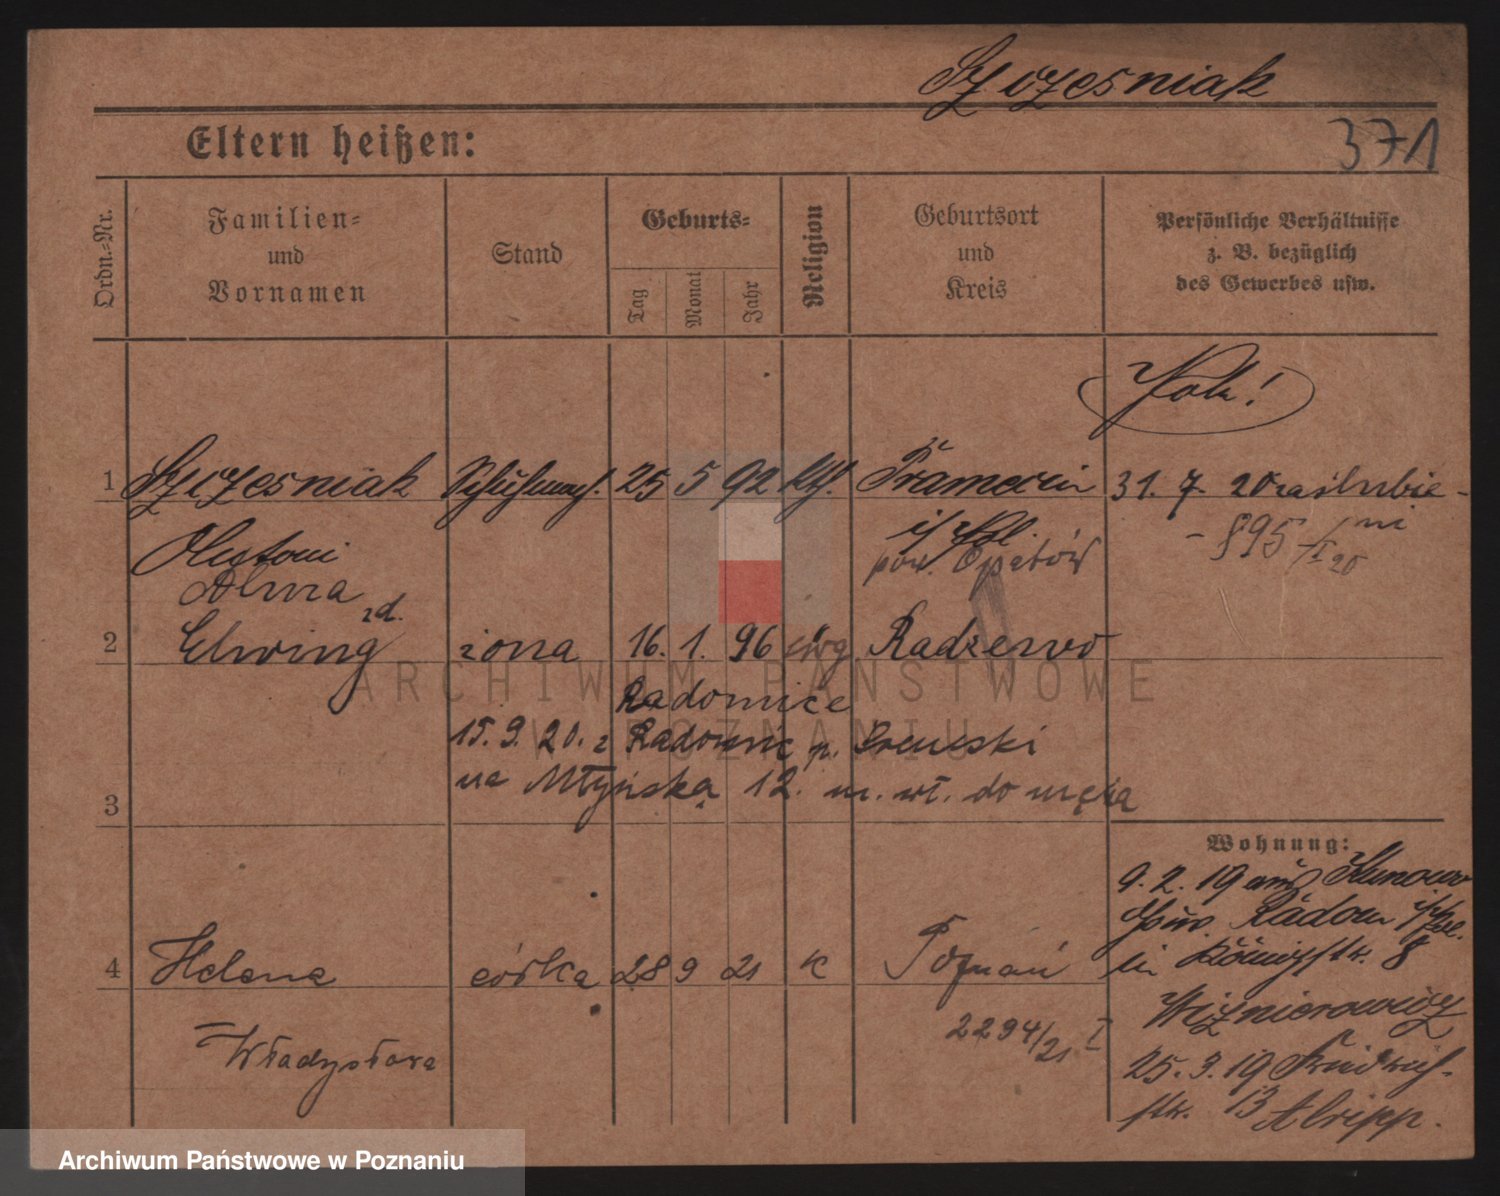 Szczesniak
Eltern heißen:
371
Ordn.-Nr.
Familien-
und
Vornamen
Stand
Geburts-
Tag
Monat
Jahr
Religion
Geburtsort
und
Kreis
Persönliche Verhältnisse
z. B. bezüglich
des Gewerbes usw.
1 Szczesniak Schuhmach. 25 5 92 kth. 31. 7. 20 zaślubie-
ni
Antoni i/Pol.
pow. Opatów - 895/I 20
Alma
zd.
2 Elwing żona 16. 1. 96 ewg Radzewo
Radomice
15. 9. 20. z Radomic p. Szremski
na Młyńską 12. m. wł. do męża
3
Wohnung:
9. 2. 19 aus Kunowo
Gouv. Radom i/Pol.
in Königstr. 8
4 Helena córka 28 9 21 k Poznań
Władysława
2294/21 I
25. 3. 19 Friedrich-
str. 13
ARCHIWUM PAŃSTWOWE
W POZNANIU
Archiwum Państwowe w Poznaniu